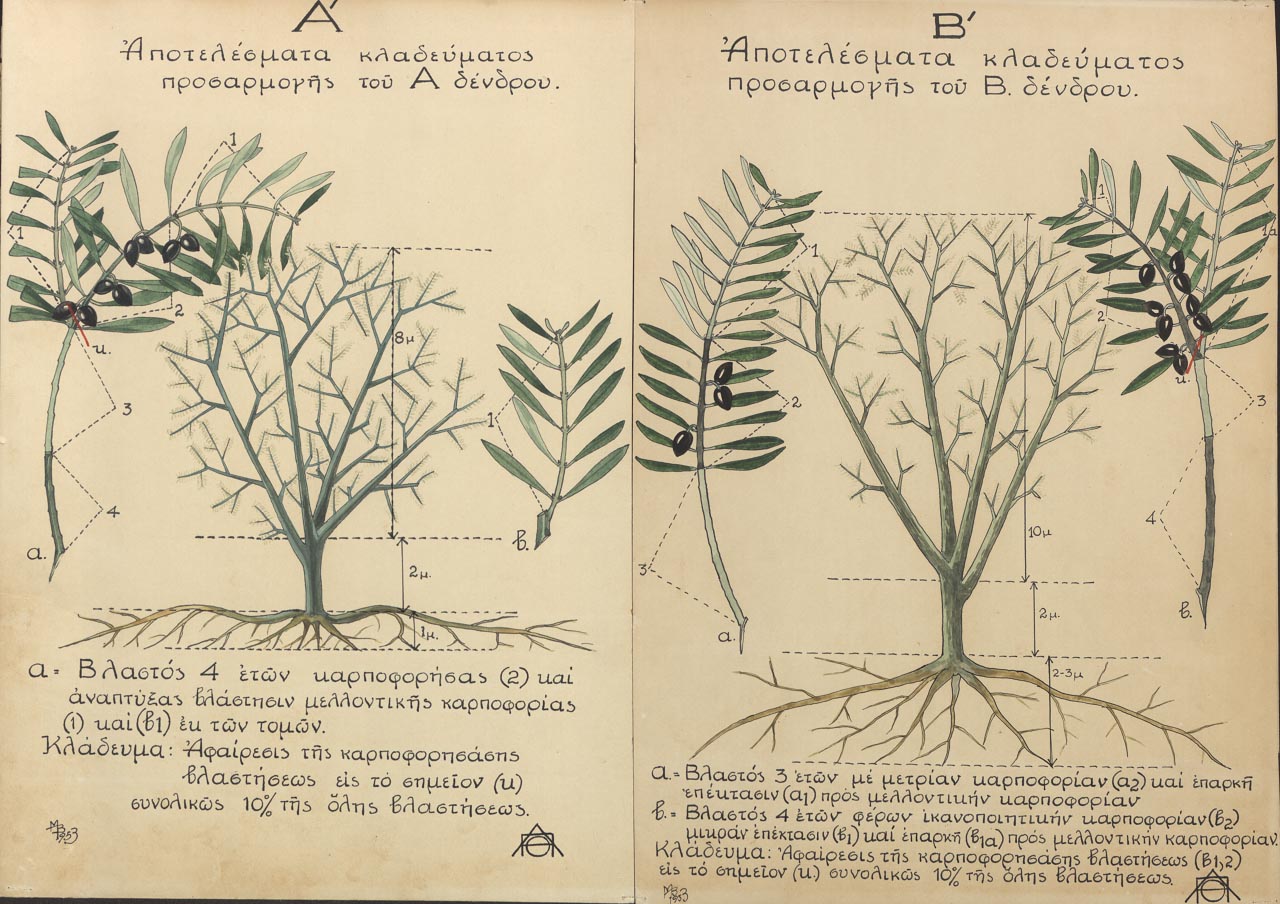 Α'
Ἀποτελέσματα κλαδεύματος
προσαρμογῆς τοῦ Α δένδρου.
1
1
2
κ.
3
4
α.
8μ
2μ.
1μ.
1
β.
α = Βλαστός 4 ἐτῶν καρποφορήσας (2) καί
ἀναπτύξας βλάστησιν μελλοντικῆς καρποφορίας
(1) καί (β1) ἐκ τῶν τομῶν.
Κλάδευμα: Ἀφαίρεσις τῆς καρποφορησάσης
βλαστήσεως εἰς τό σημεῖον (κ)
συνολικῶς 10% τῆς ὅλης βλαστήσεως.
1953
Β'
Ἀποτελέσματα κλαδεύματος
προσαρμογῆς τοῦ Β. δένδρου.
1
2
3
α.
10μ
2μ
2-3μ
1
1α
2
κ.
3
4
β.
α.= Βλαστός 3 ἐτῶν μέ μετρίαν καρποφορίαν (α2) καί ἐπαρκῆ
ἐπέκτασιν (α1) πρός μελλοντικήν καρποφορίαν
β.= Βλαστός 4 ἐτῶν φέρων ἱκανοποιητικήν καρποφορίαν (β2)
μικράν ἐπέκτασιν (β1) καί ἐπαρκῆ (β1α) πρός μελλοντικήν καρποφορίαν.
Κλάδευμα: Ἀφαίρεσις τῆς καρποφορησάσης βλαστήσεως (β1,2)
εἰς τό σημεῖον (κ.) συνολικῶς 10% τῆς ὅλης βλαστήσεως.
1953